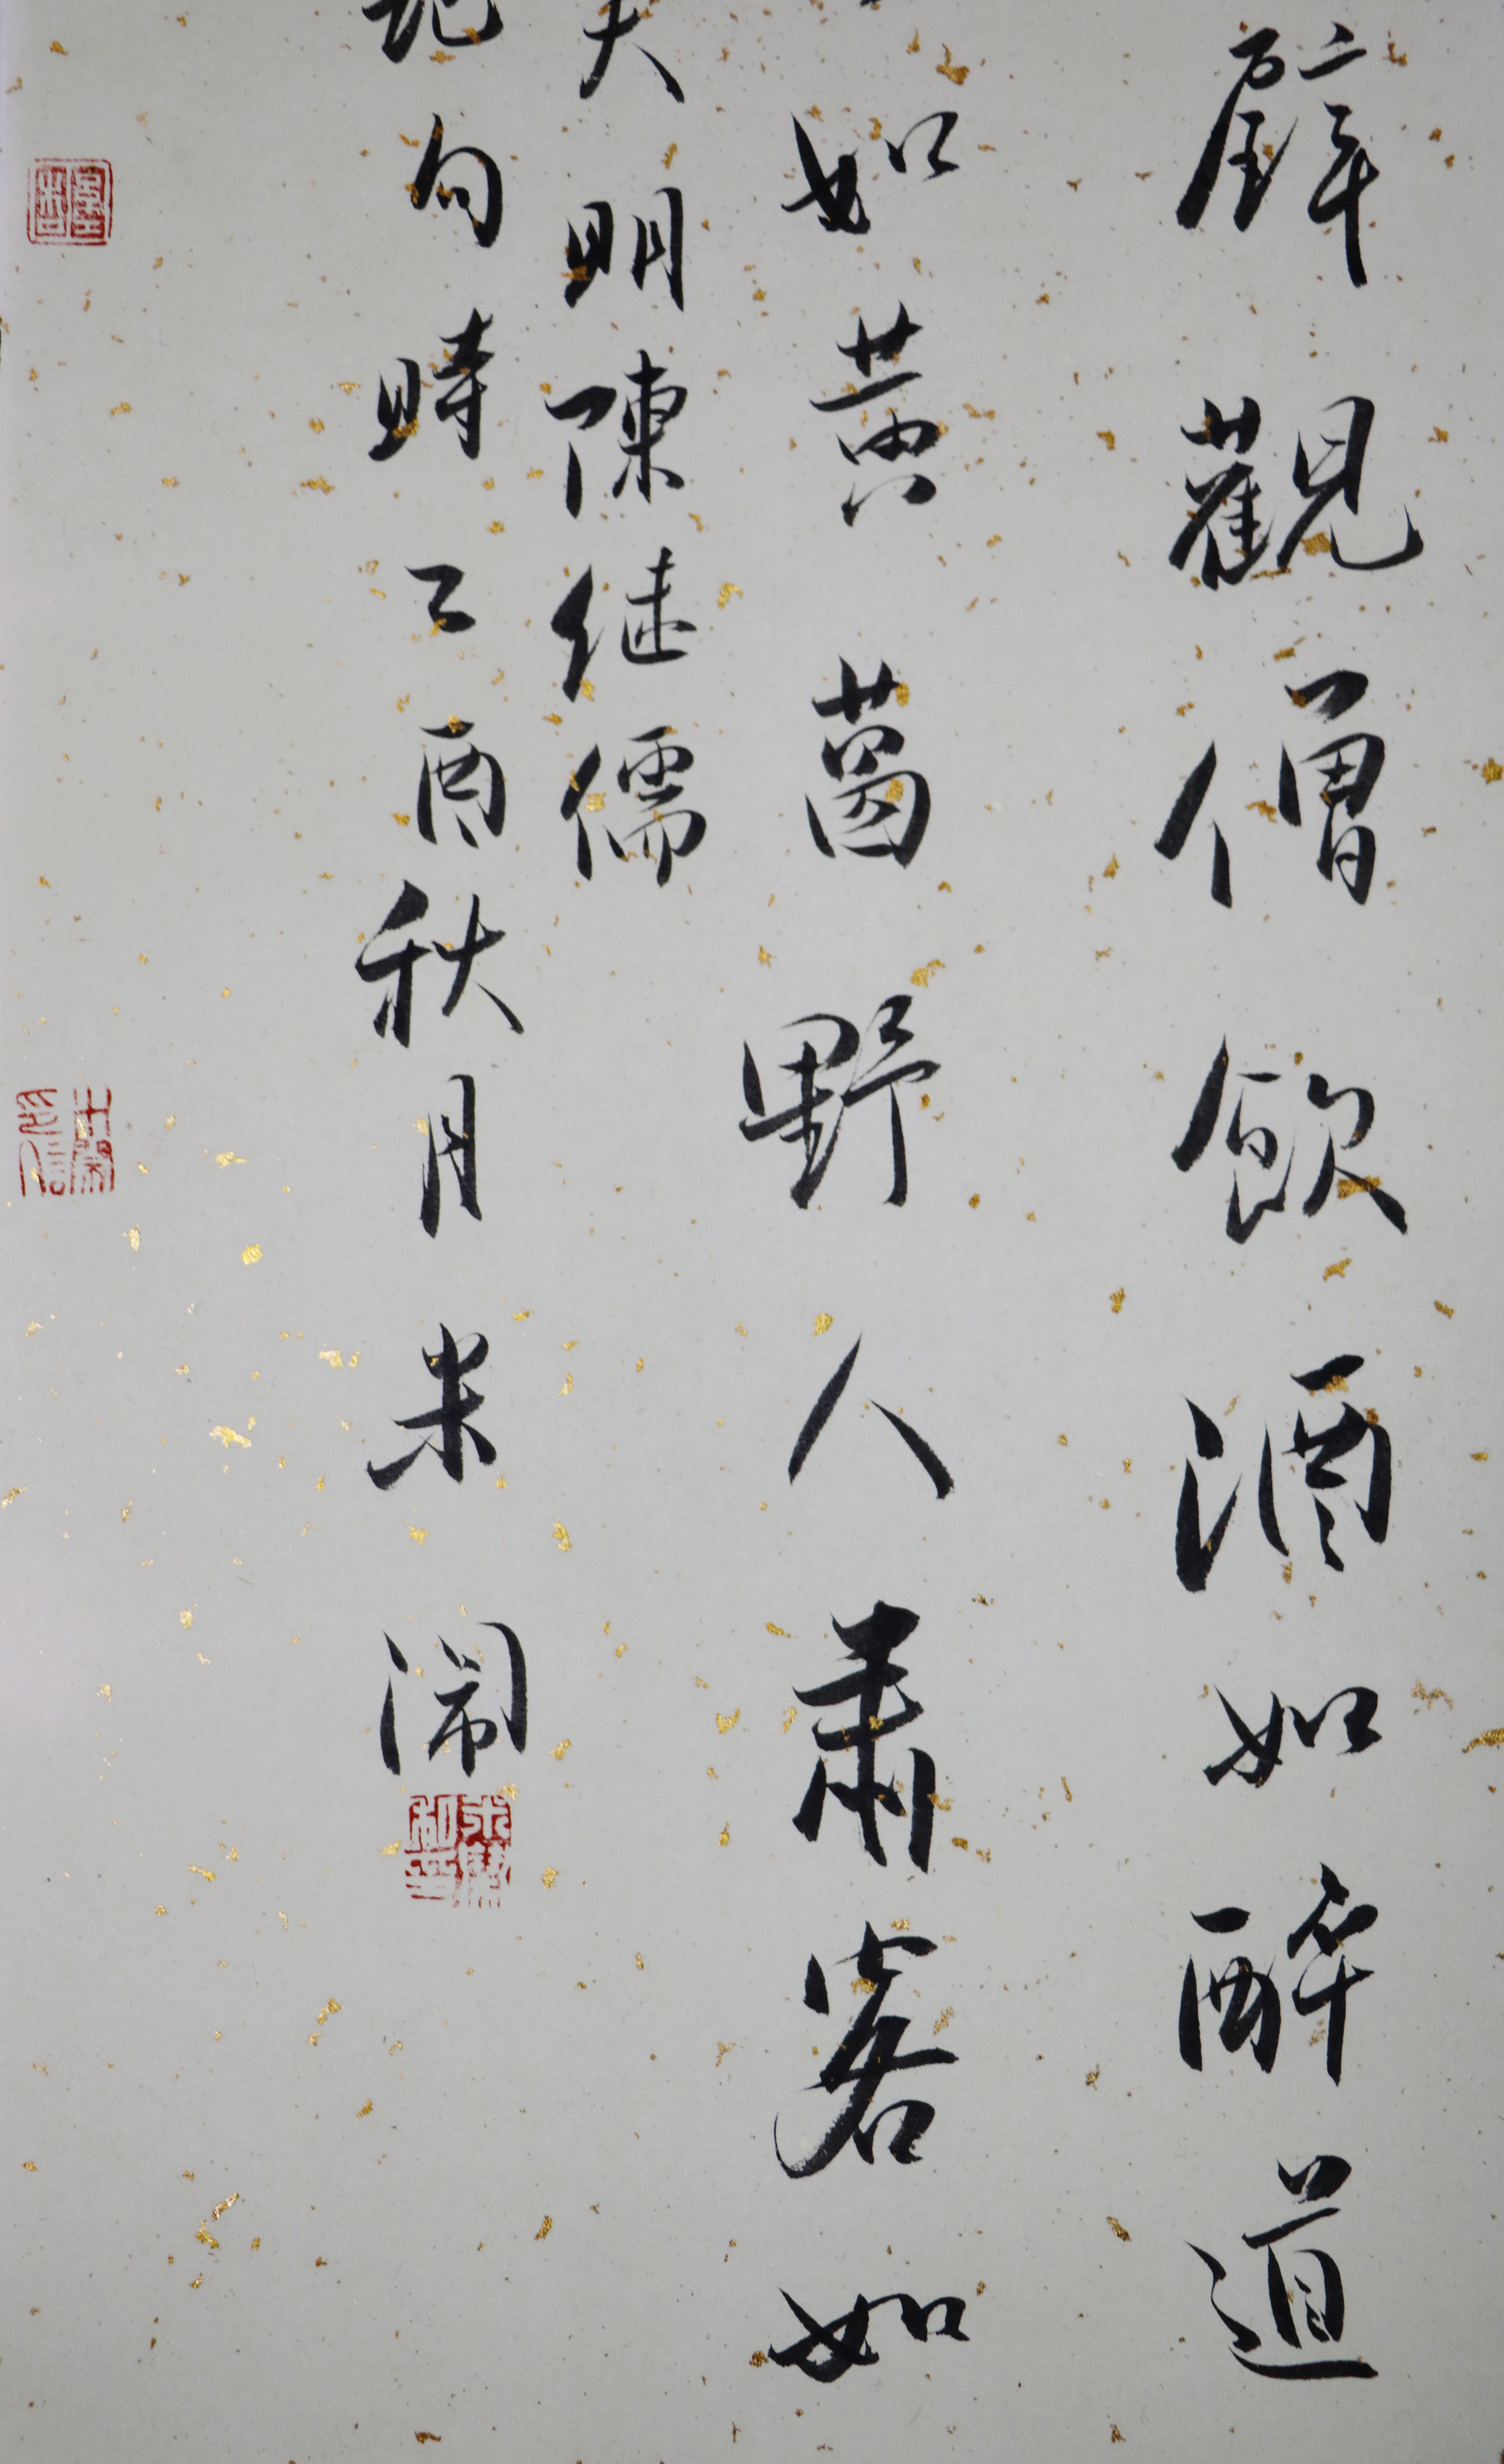 壁觀僧飲酒如醉道
如黄葛野人肅客如
大明陳继儒
句時乙酉秋月米闹